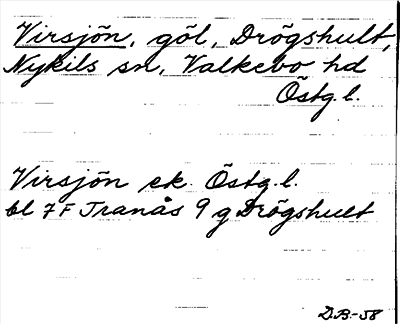 Virsjön, göl, Drögshult,
Nykils sn, Valkebo hd
Östg.l.
Virsjön ek. Östg.l.
bl 7F Tranås 9 g Drögshult
D.B.-58